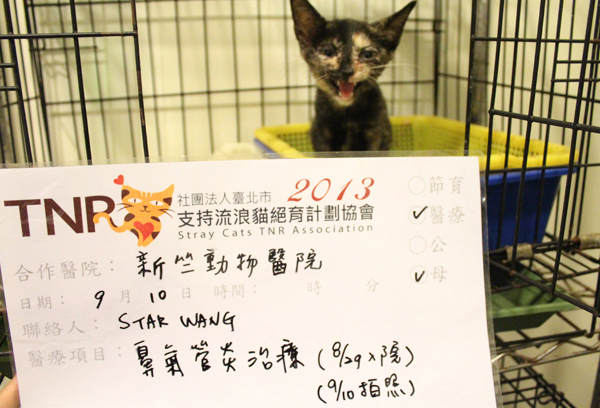 TNR 社團法人臺北市 2013
支持流浪貓絕育計劃協會
Stray Cats TNR Association
○節育
✓醫療
○公
✓母
合作醫院：新竺動物醫院
日期：9月10日 時間： 時 分
聯絡人：STAR WANG
醫療項目：鼻氣管炎治療 (8/29入院)
(9/10拍照)